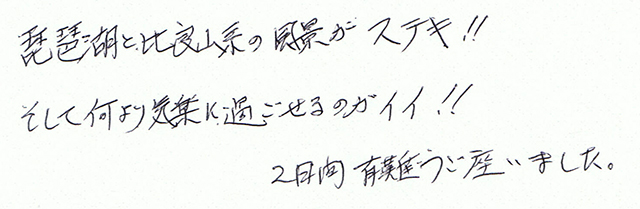 琵琶湖と比良山系の風景がステキ!!
そして何より気楽に過ごせるのがイイ!!
2日間有難うご座いました。